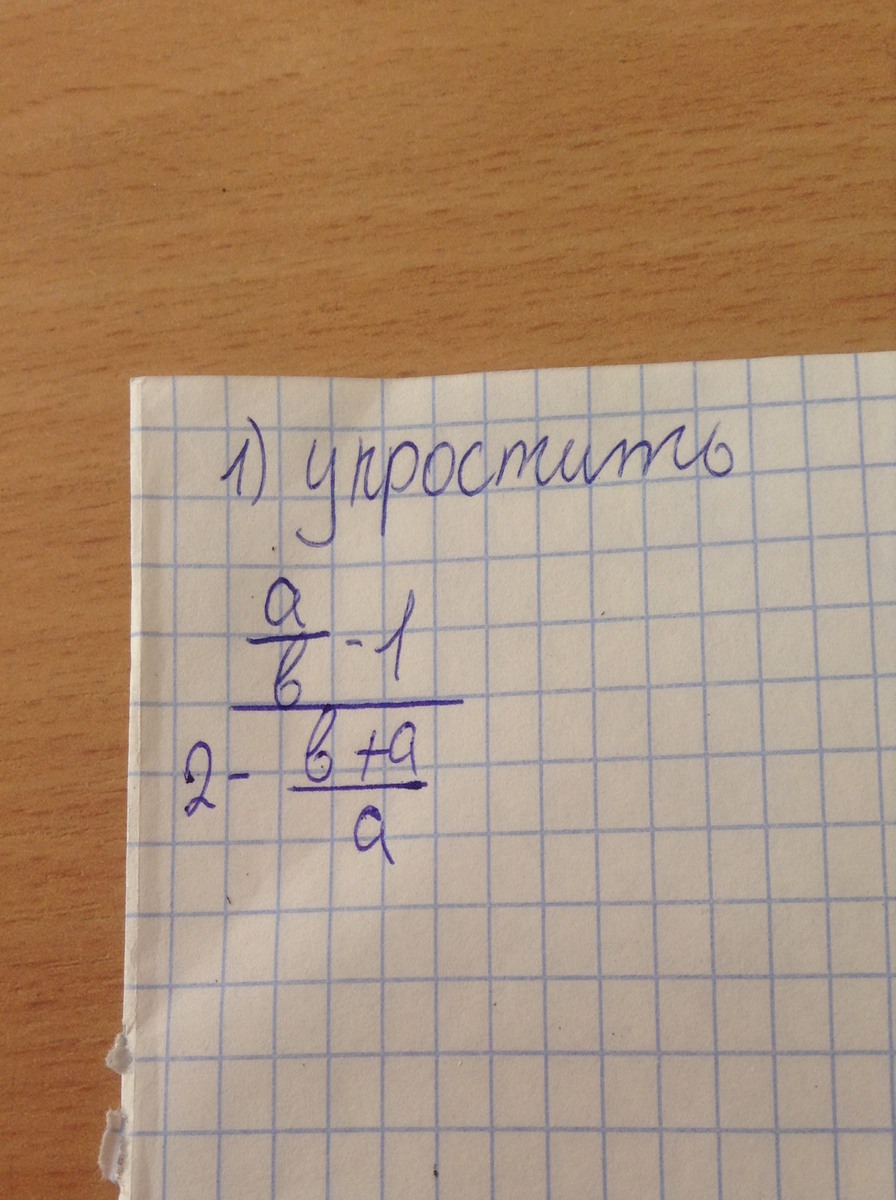 1) упростить
a
в - 1
2 - в + a
a